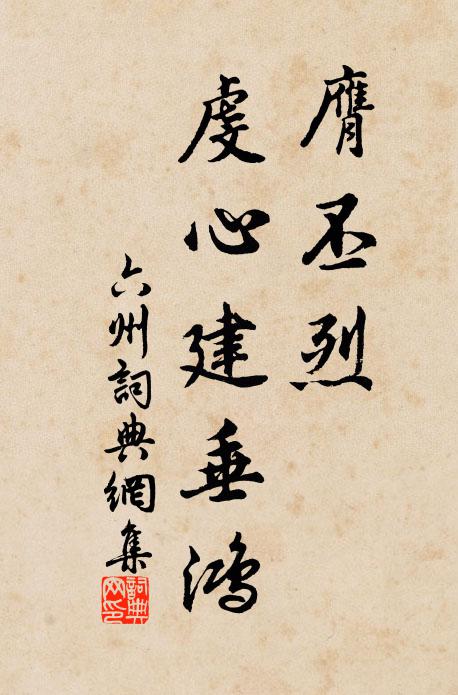 膺丕烈
虔心建垂鴻
六州詞典網集
詞典网印